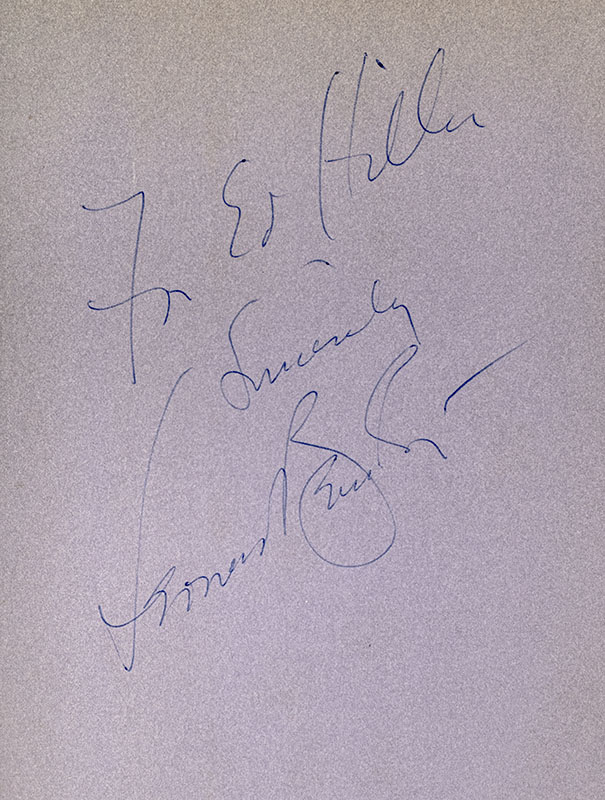 For Ed Hiller
Sincerely
Leonard Bernstein